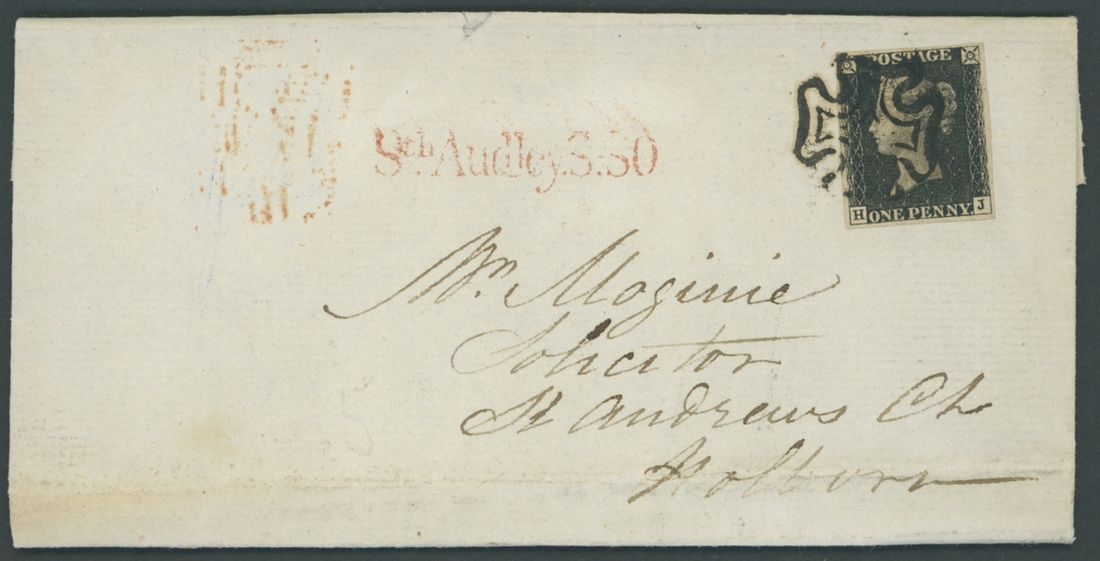 Sth Audley.S.SO
POSTAGE
H ONE PENNY. J
Mr. Moginie
Solicitor
St Andrews Ct
Holborn